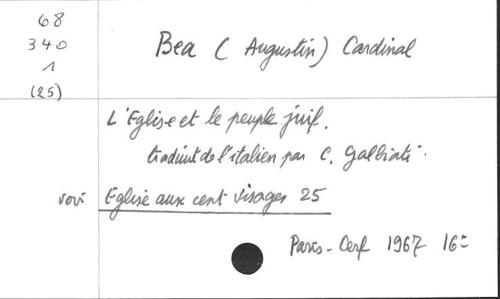 68
340
1
(25)
Bea (Augustin) Cardinal
L'Eglise et le peuple juif.
traduit de l'italien par C. Galbiati.
voir Eglise aux cent visages 25
Paris - Cerf 1967 16°